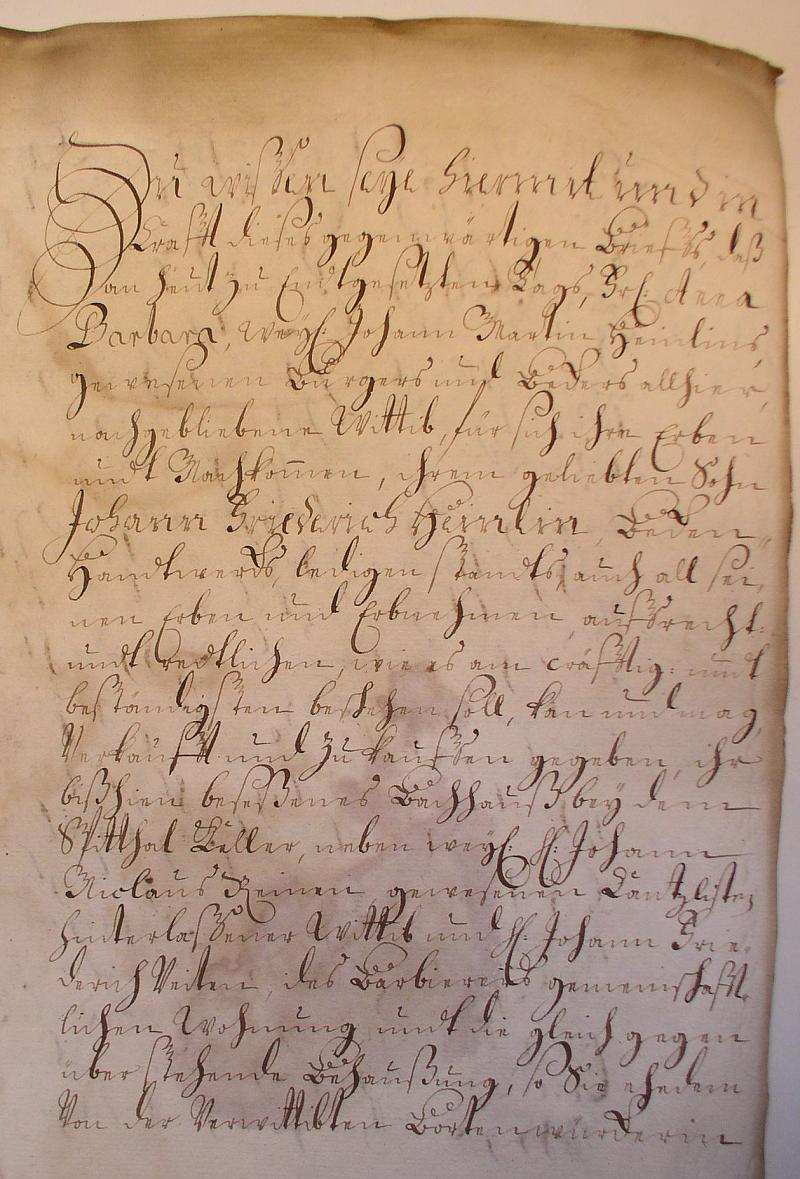 Zu wissen seye hiermit und in
Krafft dieses gegenwärtigen Brieffs, daß
an heut zu Endtgesetztem Tags, Fr. Anna
Barbara, weyl. Johann Martin Heinlins,
gewesenen Burgers und Beckers allhier,
nachgebliebene Wittib, für sich ihre Erben
undt Nachkommen, ihrem geliebten Sohn
Johann Friederich Heinlin, Becken
Handtwercks, ledigen standts, auch all sei
nen Erben und Erbnehmen, auffrecht:
undt redtlichen, wie es am cräfftig: undt
beständigsten beschehen soll, kan und mag,
Verkaufft und zu kauffen gegeben, ihr
bißhien beseßenes Bachhauß bey dem
Spitthal Keller, neben weyl. H. Johann
Niclaus Reinen, gewesenen Cantzlisten
hinterlassener Wittib und H. Johann Frie
derich Veiten, des Barbierers gemeinschafft
lichen Wohnung undt die gleich gegen
über stehende Behaußung, so Sie ehedem
Von der Verwittibten Bortenwürckerin